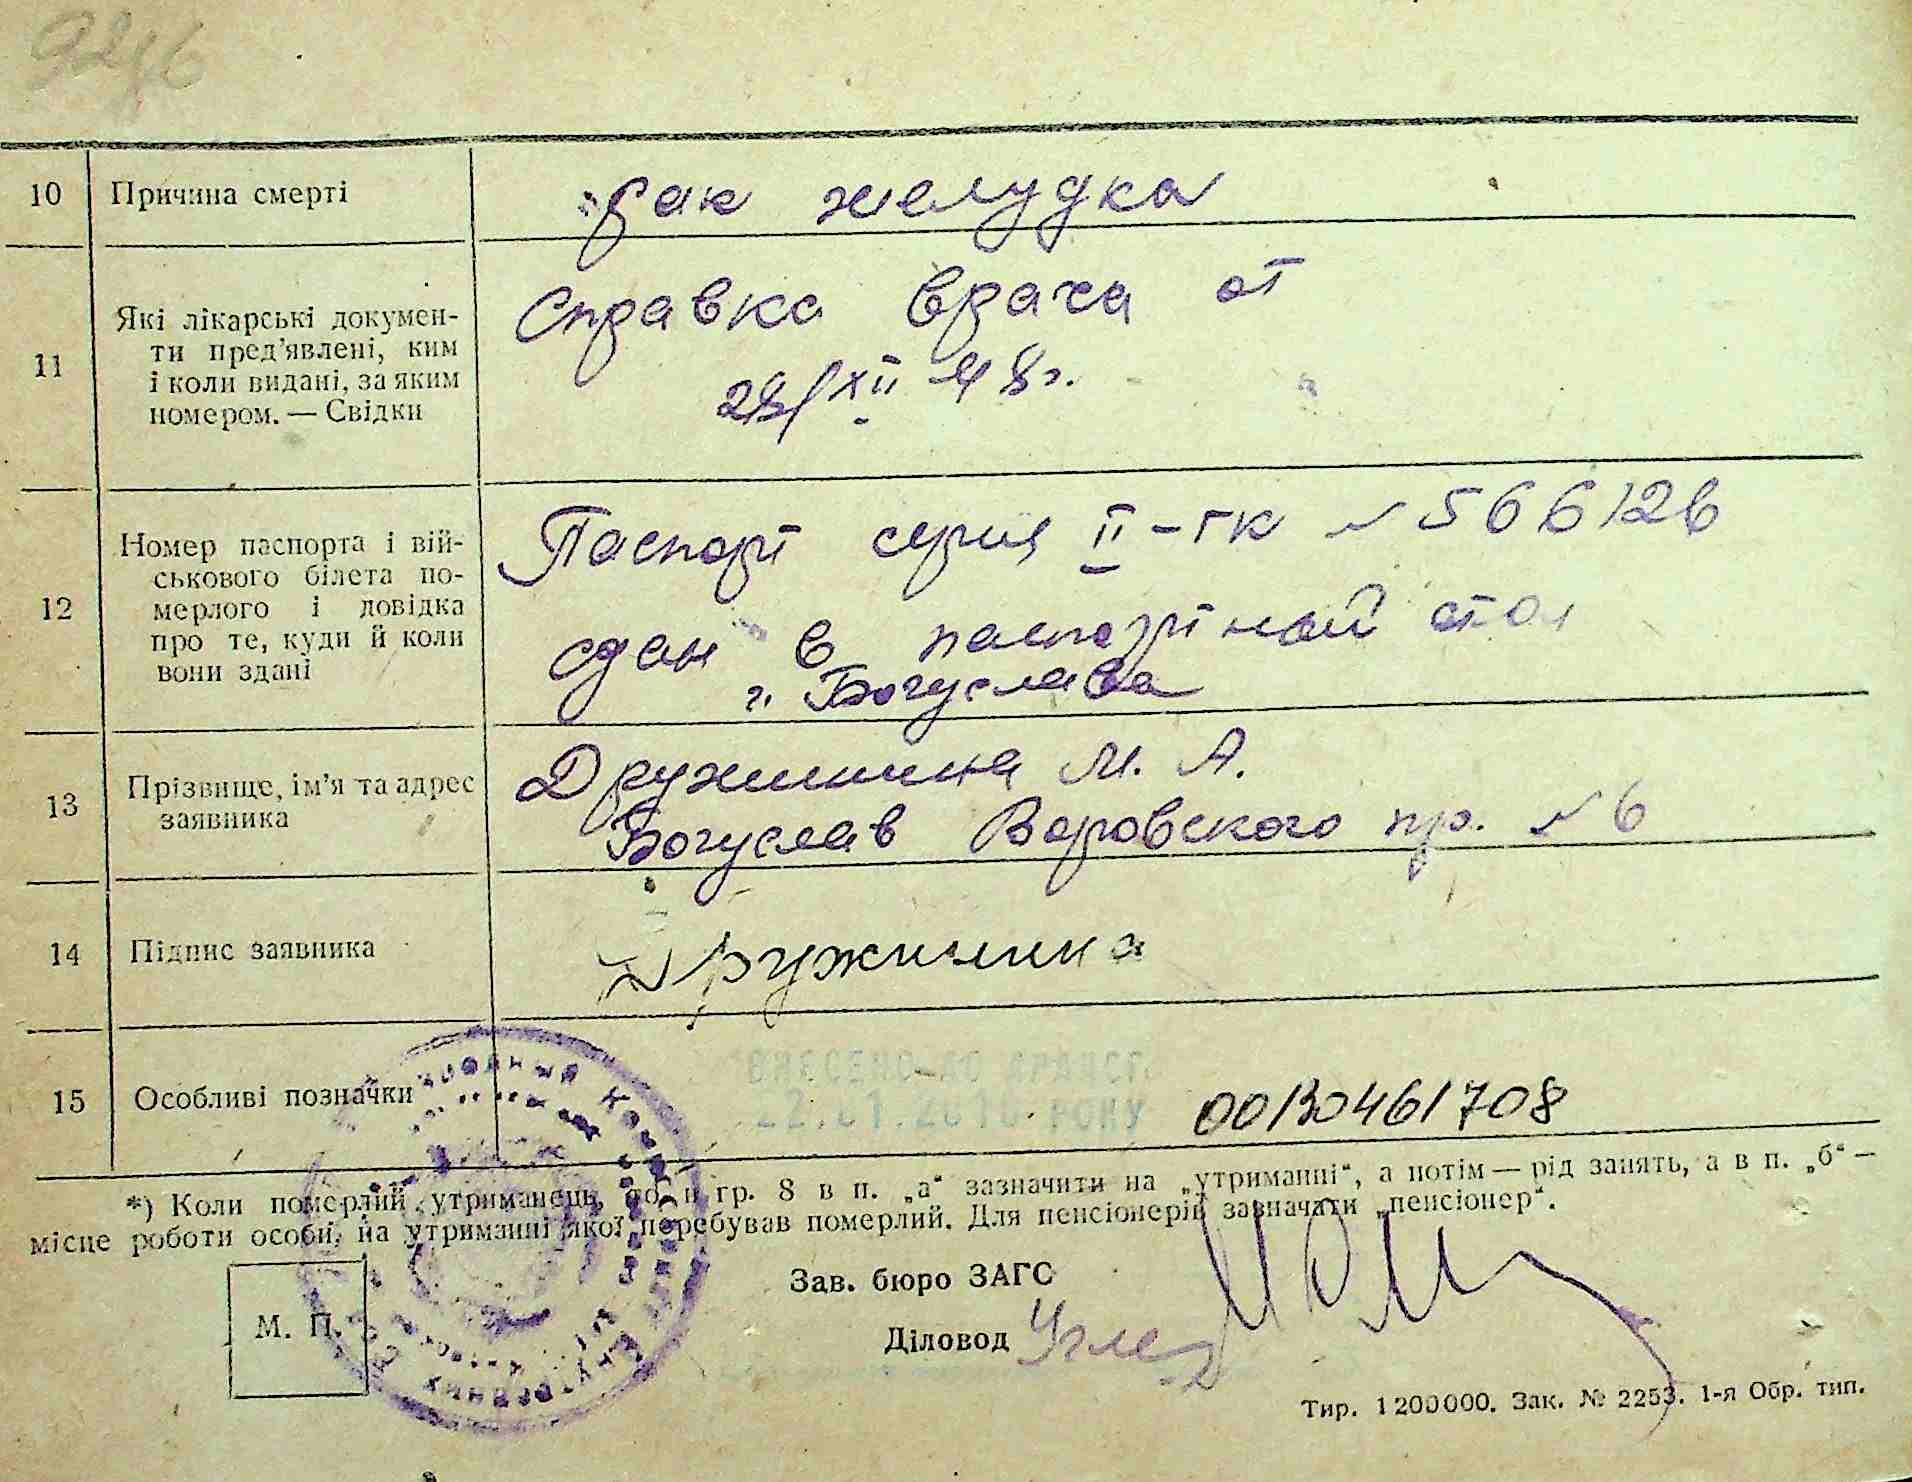 10 Причина смерті рак желудка
11 Які лікарські докумен-
ти пред'явлені, ким
і коли видані, за яким
номером. — Свідки
Справка врача от
28/XII 48 г.
12 Номер паспорта і вій-
ськового білета по-
мерлого і довідка
про те, куди й коли
вони здані
Паспорт серия II-ГК № 566126
сдан в паспортный стол
г. Богуслава
13 Прізвище, ім'я та адрес
заявника
Дружинина М. А.
Богуслав Воровского пр. № 6
14 Підпис заявника Дружинина
15 Особливі позначки
ВНЕСЕНО ДО
РОКУ
00130461708
*) Коли померлий утриманець, то в гр. 8 в п. „а“ зазначити на „утриманні“, а потім — рід занять, а в п. „б“ —
місце роботи особи, на утриманні якої перебував померлий. Для пенсіонерів зазначати „пенсіонер“.
Зав. бюро ЗАГС
М. П.
Діловод
Тир. 1200000. Зак. № 2253. 1-я Обр. тип.